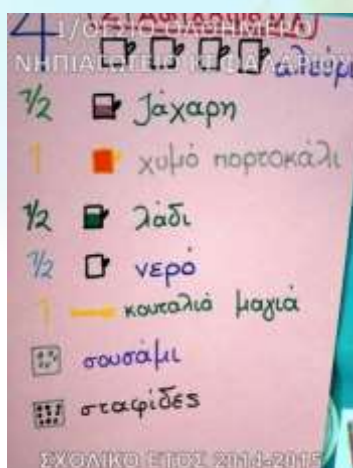 1/ΘΕΣΙΟ ΟΛΟΗΜΕΡΟ
ΝΗΠΙΑΓΩΓΕΙΟ ΚΕΦΑΛΑΡΙΟΥ
4 αλεύρι
1/2 ζάχαρη
1 χυμό πορτοκάλι
1/2 λάδι
1/2 νερό
1 κουταλιά μαγιά
σουσάμι
σταφίδες
ΣΧΟΛΙΚΟ ΕΤΟΣ 2014-2015